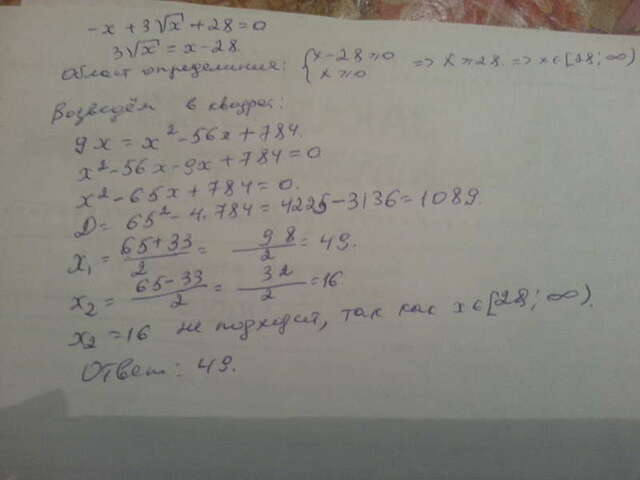 -x + 3√x + 28 = 0
3√x = x - 28.
Област определиния: { x - 28 ≥ 0 x ≥ 0 => x ≥ 28 => x ∈ [28; ∞)
Возведём в квадрат:
9x = x² - 56x + 784.
x² - 56x - 9x + 784 = 0
x² - 65x + 784 = 0.
D = 65² - 4·784 = 4225 - 3136 = 1089.
x₁ = (65 + 33)/2 = 98/2 = 49.
x₂ = (65 - 33)/2 = 32/2 = 16.
x₂ = 16 не подходят, так как x ∈ [28; ∞).
Ответ: 49.